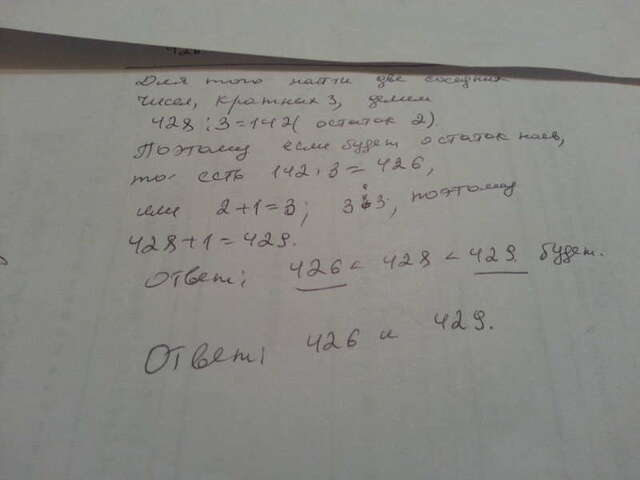 Для того найти две соседних
чисел, кратных 3, делим
428 : 3 = 142 ( остаток 2)
Поэтому если будет остаток
то есть 142 · 3 = 426,
или 2+1=3; 3⋮3, поэтому
428+1=429.
Ответ: 426 < 428 < 429 будет.
Ответ: 426 и 429.